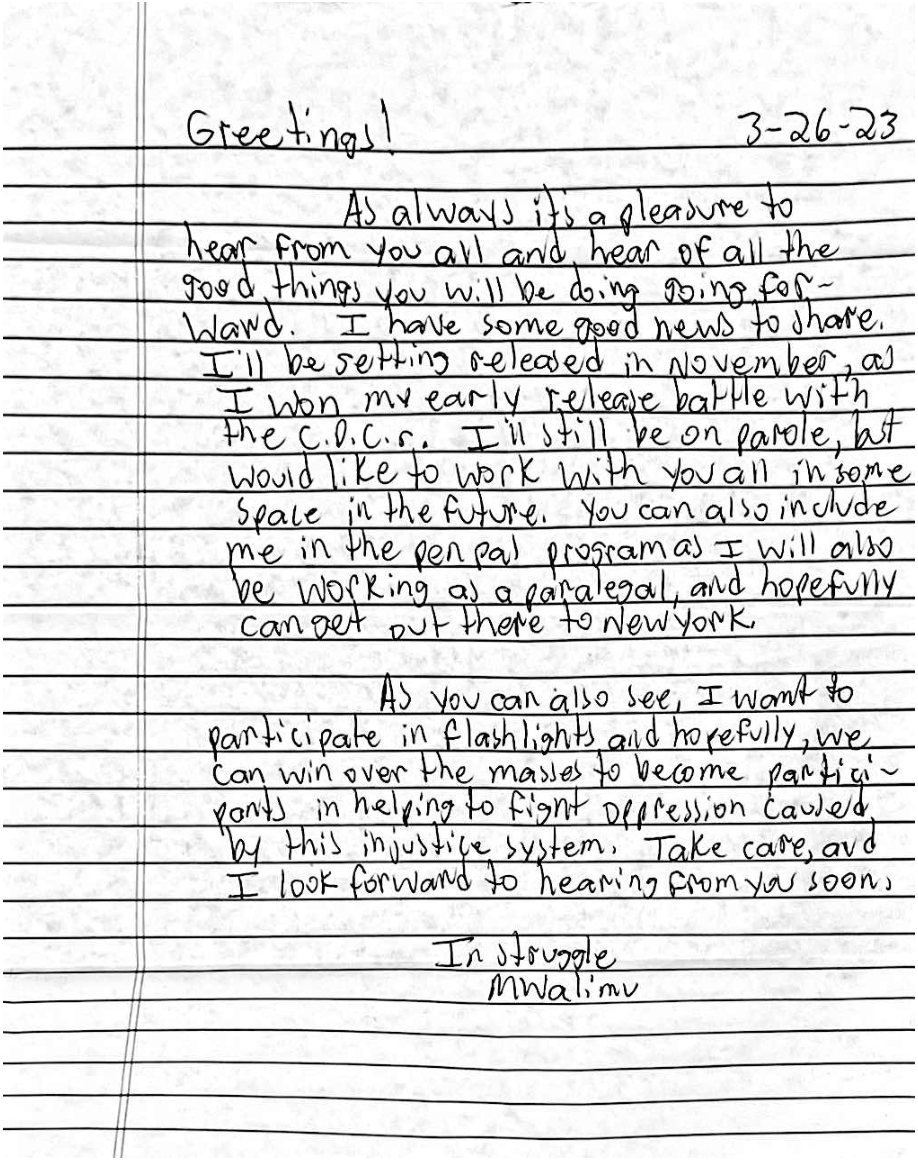 Greetings! 3-26-23
As always it's a pleasure to
hear from you all and hear of all the
good things you will be doing going for-
ward. I have some good news to share.
I'll be getting released in November, as
I won my early release battle with
the C.D.C.r. I'll still be on parole, but
would like to work with you all in some
space in the future. You can also include
me in the pen pal program as I will also
be working as a paralegal, and hopefully
can get out there to New York.
As you can also see, I want to
participate in flashlights and hopefully, we
can win over the masses to become partici-
pants in helping to fight oppression caused
by this injustice system. Take care, and
I look forward to hearing from you soon.
In struggle
Mwalimu